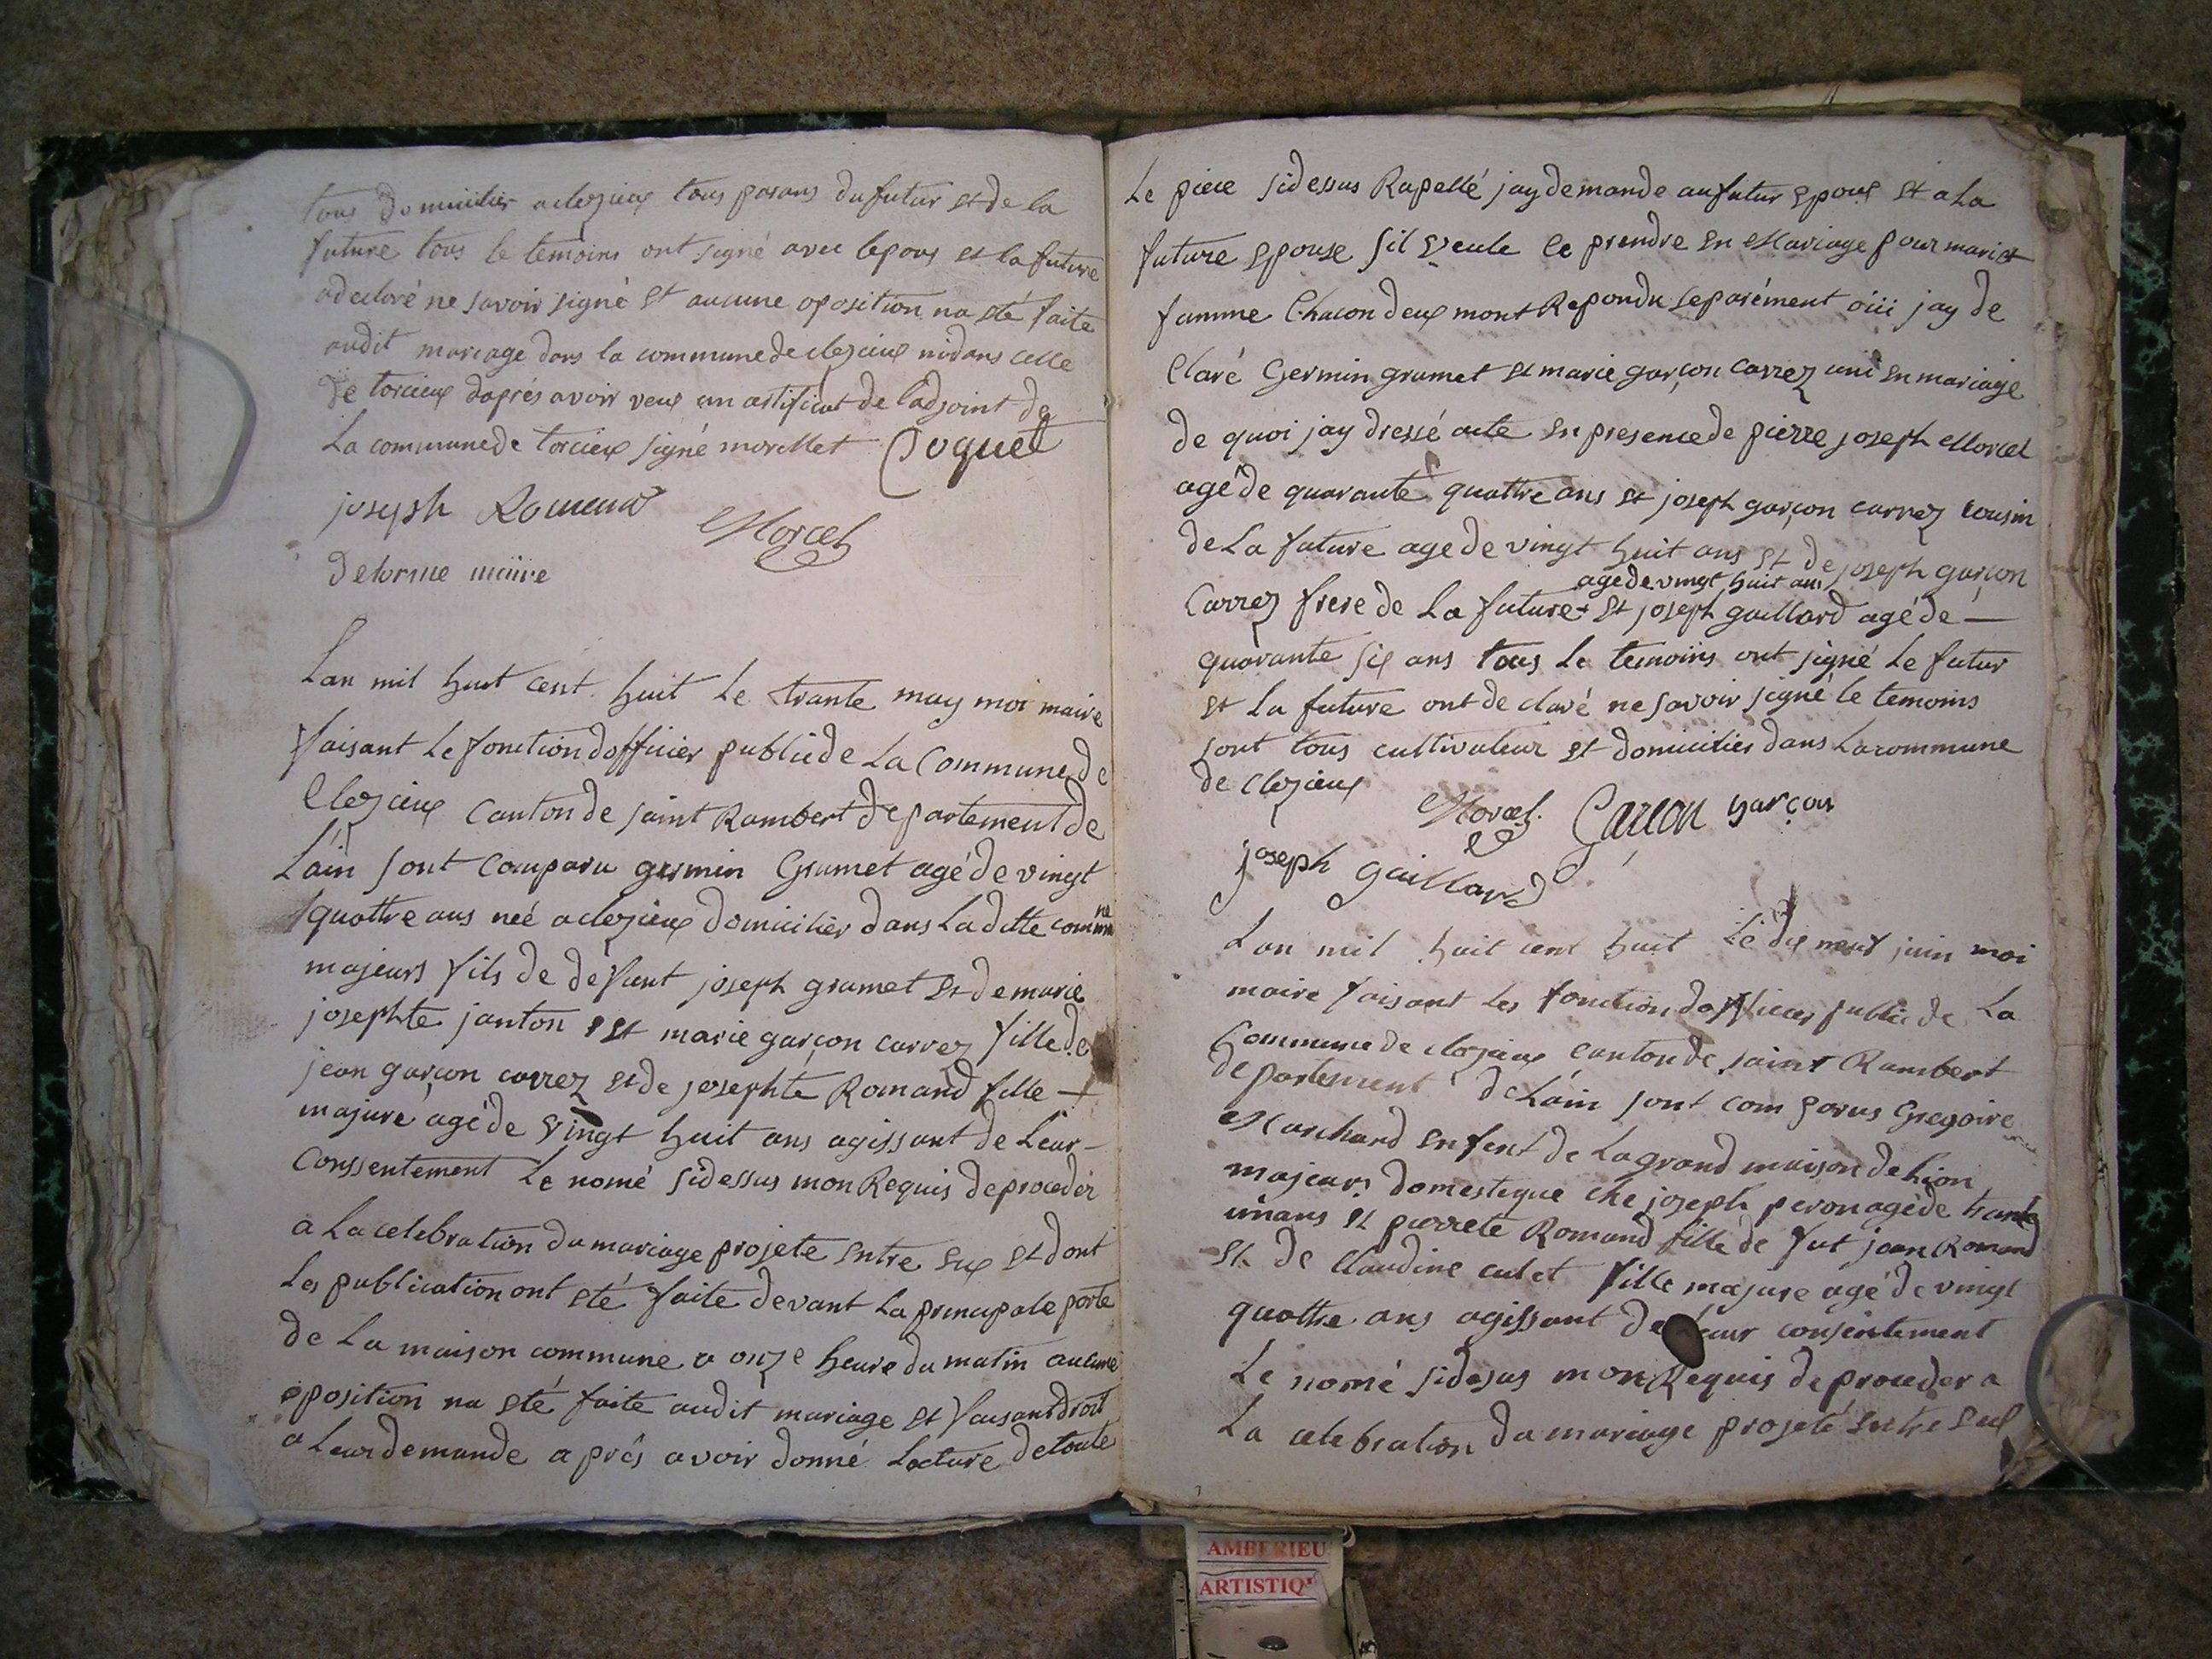 tous domiicilier a clezieux tous parans du futur et de la
future tous le temoins ont signé avec lepoux et la future
a declaré ne savoir signé et aucune oposition na eté faite
audit mariage dans la commune de clezieux ni dans celle
de torcieux daprés avoir veux un artificat de ladjoint de
La commune de torcieux signé morellet Coquet
joseph Romand Morcel
delorme maire
Lan mil huit cent huit le trante may moi maire
faisant le fonction dofficier public de La Commune de
Clezieux Canton de saint Rambert departement de
Lain sont Comparu germin Grumet agé de vingt
quattre ans neé a clezieux domicilier dans La ditte commune
majeurs fils de defunt joseph grumet et de marie
josephte janton et marie garçon carrez fille de
jean garçon carrez et de josephte Romand fille
majure agé de vingt huit ans agissant de Leur
Conssentement Le nomé sidessus mon Requis de proceder
a La celebration du mariage projete entre eux et dont
Les publication ont eté faite devant La principale porte
de La maison commune a onze heure du matin aucune
oposition na eté faite audit mariage et faisant droit
a Leur demande a prés avoir donné Lecture de toute
Le piece sidessus Rapellé jay demande au futur epoux et a La
future epouse sil veule ce prendre en Mariage pour mari et
famme Chacon deux mont Repondu separément oüi jay de
Claré Germin grumet et marie garçon carrez uni en mariage
de quoi jay dressé acte en presence de pierre joseph Morcel
agé de quarante quattre ans et joseph garçon carrez cousin
de La future age de vingt huit ans et de joseph garçon
age de vingt huit ans
Carrez frere de La future + et joseph gaillard agé de
quarante six ans tous Le temoins ont signé Le futur
et La future ont de claré ne savoir signé le temoins
sont tous cultivateur et domicilies dans La commune
de Clezieux
Morcel Garçon garçon
joseph gaillard
Lan mil huit cent huit Le dix neuf juin moi
maire faisant Les fonction dofficier public de La
Commune de clezieux canton de saint Rambert
departement de Lain sont com parus Gregoire
Marchand enfent de La grand maison de Lion
majeurs domestique che joseph peron agé de trante
un ans et pierrete Romand fille de fut jean Romand
et de Claudine culet fille majure agé de vingt
quattre ans agissant de Leur consentement
Le nomé sidesus mon Requis de proceder a
La celebration du mariage projeté entre eux
AMBERIEU
ARTISTIQ